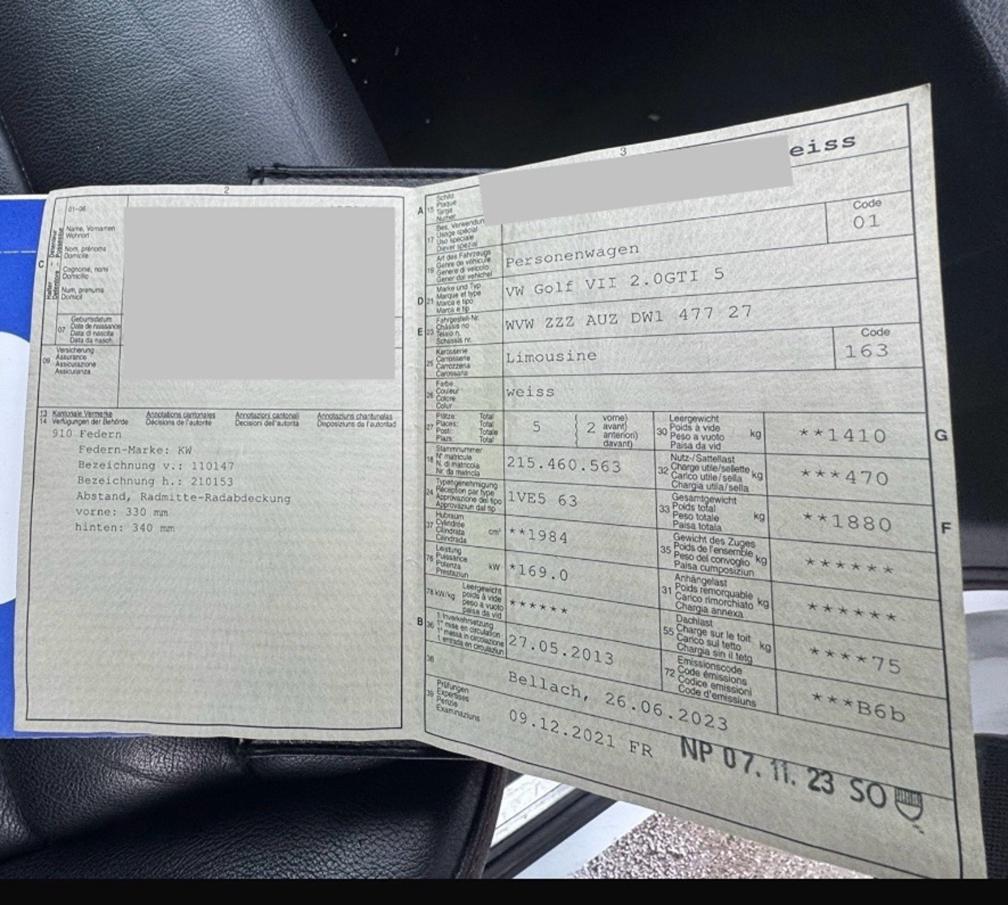 2
01-06
C
Halter
Name, Vornamen
Wohnort
Nom, prénoms
Domicile
Cognome, nomi
Domicilio
Num, prenums
Domicil
07
Geburtsdatum
Date de naissance
Data di nascita
Data da nasch.
09
Versicherung
Assurance
Assicurazione
Assicuranza
13 Kantonale Vermerke Annotations cantonales Annotazioni cantonali Annotaziuns chantunalas
14 Verfügungen der Behörde Décisions de l'autorité Decisioni dell'autorità Disposiziuns da l'autoritad
910 Federn
Federn-Marke: KW
Bezeichnung v.: 110147
Bezeichnung h.: 210153
Abstand, Radmitte-Radabdeckung
vorne: 330 mm
hinten: 340 mm
3
A 15
Schild
Plaque
Targa
Numer
eiss
17
Bes. Verwendung
Usage spécial
Uso speciale
Diever spezial
Code
01
19
Art des Fahrzeugs
Genre de véhicule
Genere di veicolo
Gener dal vehichel
Personenwagen
D 21
Marke und Typ
Marque et type
Marca e tipo
Marca e tip
VW Golf VII 2.0GTI 5
E 23
Fahrgestell-Nr.
Châssis no
Telaio n.
Schassis nr.
WVW ZZZ AUZ DW1 477 27
25
Karosserie
Carrosserie
Carrozzeria
Carossaria
Limousine
Code
163
26
Farbe
Couleur
Colore
Colur
weiss
27
Plätze: Total
Places: Total
Posti: Totale
Plazs: Total
5 ( 2 vorne)
avant)
anteriori)
davant)
30
Leergewicht
Poids à vide
Peso a vuoto
Paisa da vid
kg
**1410
G
18
Stammnummer
N° matricule
N. di matricola
Nr. da matricla
215.460.563
32
Nutz-/Sattellast
Charge utile/sellette
Carico utile/sella
Chargia utila/sella
kg
***470
24
Typengenehmigung
Réception par type
Approvazione del tipo
Approvaziun dal tip
1VE5 63
33
Gesamtgewicht
Poids total
Peso totale
Paisa totala
kg
**1880
F
37
Hubraum
Cylindrée
Cilindrata
Cilindrada
cm³
**1984
35
Gewicht des Zuges
Poids de l'ensemble
Peso del convoglio
Paisa cumposiziun
kg
******
76
Leistung
Puissance
Potenza
Prestaziun
kW
*169.0
31
Anhängelast
Poids remorquable
Carico rimorchiato
Chargia annexa
kg
******
78 kW/kg
Leergewicht
poids à vide
peso a vuoto
paisa da vid
******
55
Dachlast
Charge sur le toit
Carico sul tetto
Chargia sin il tetg
kg
****75
B 36
1. Inverkehrsetzung
1re mise en circulation
1a messa in circolazione
1. entrada en circulaziun
27.05.2013
72
Emissionscode
Code émissions
Codice emissioni
Code d'emissiuns
**B6b
38
Bellach, 26.06.2023
39
Prüfungen
Expertises
Perizie
Examinaziuns
09.12.2021 FR
NP 07. 11. 23 SO